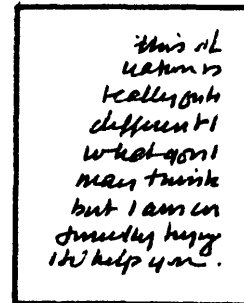 this sit
uation is
really quite
different t
what you
may think
but I am in
trying
to help you.